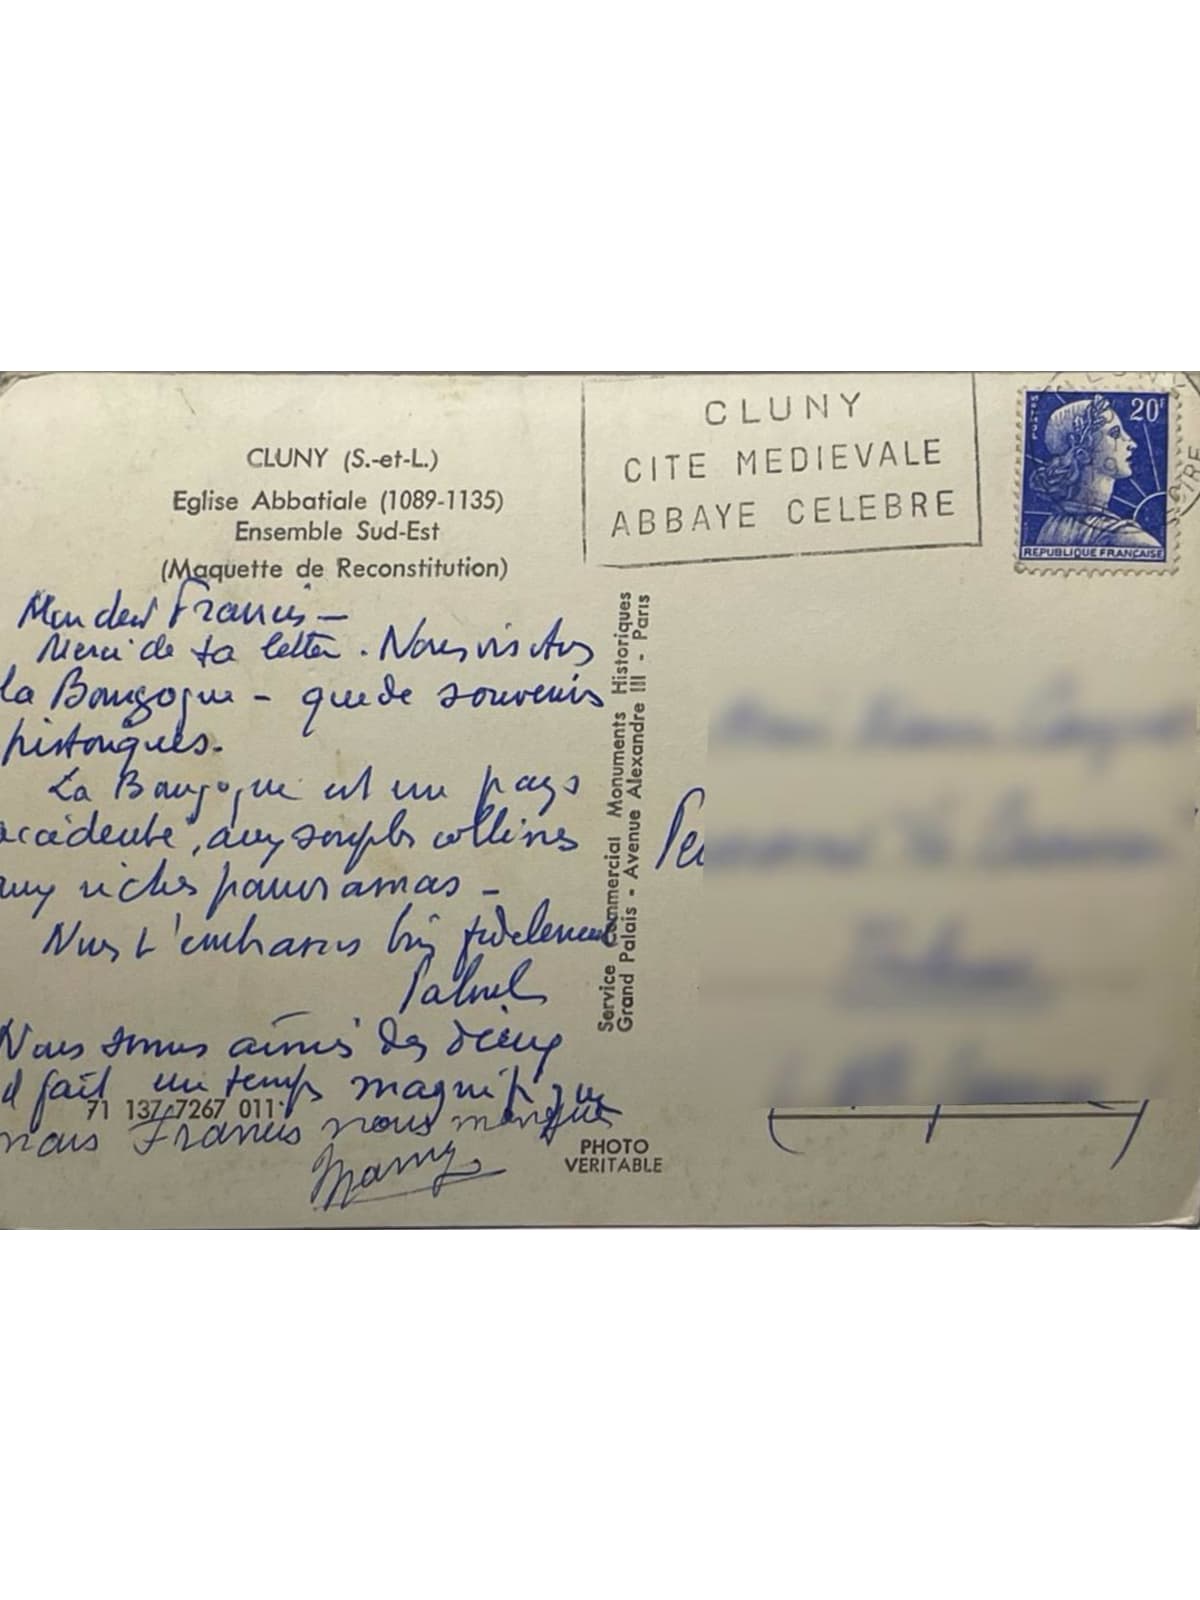 CLUNY (S.-et-L.)
Eglise Abbatiale (1089-1135)
Ensemble Sud-Est
(Maquette de Reconstitution)
Mon cher Francis —
Merci de ta lettre. Nous visitons
la Bourgogne – que de souvenirs
historiques.
La Bourgogne est un pays
accidenté, aux souples collines
aux riches panoramas –
Nous t'embrassons bien fidèlement
Nous sommes aimés des dieux
il fait un temps magnifique
mais Francis nous manque
Mamy
71 137 7267 011
CLUNY
CITE MEDIEVALE
ABBAYE CELEBRE
POSTES
20F
REPUBLIQUE FRANÇAISE
Service Commercial Monuments Historiques
Grand Palais - Avenue Alexandre III - Paris
PHOTO
VERITABLE